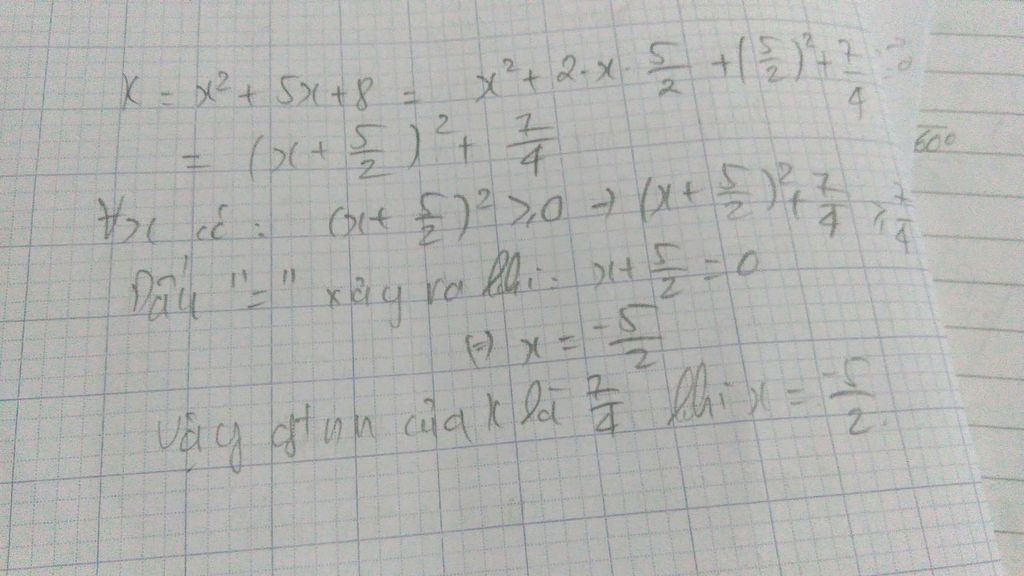 K = x² + 5x + 8 = x² + 2·x·5/2 + (5/2)² + 7/4
= (x + 5/2)² + 7/4
∀x có : (x + 5/2)² ≥ 0 → (x + 5/2)² + 7/4 ≥ 7/4
Dấu "=" xảy ra khi : x + 5/2 = 0
(=) x = -5/2
Vậy gtnn của K là 7/4 khi x = -5/2.
600